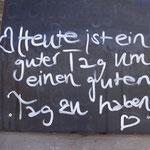 Heute ist ein
guter Tag um
einen guten
Tag zu haben